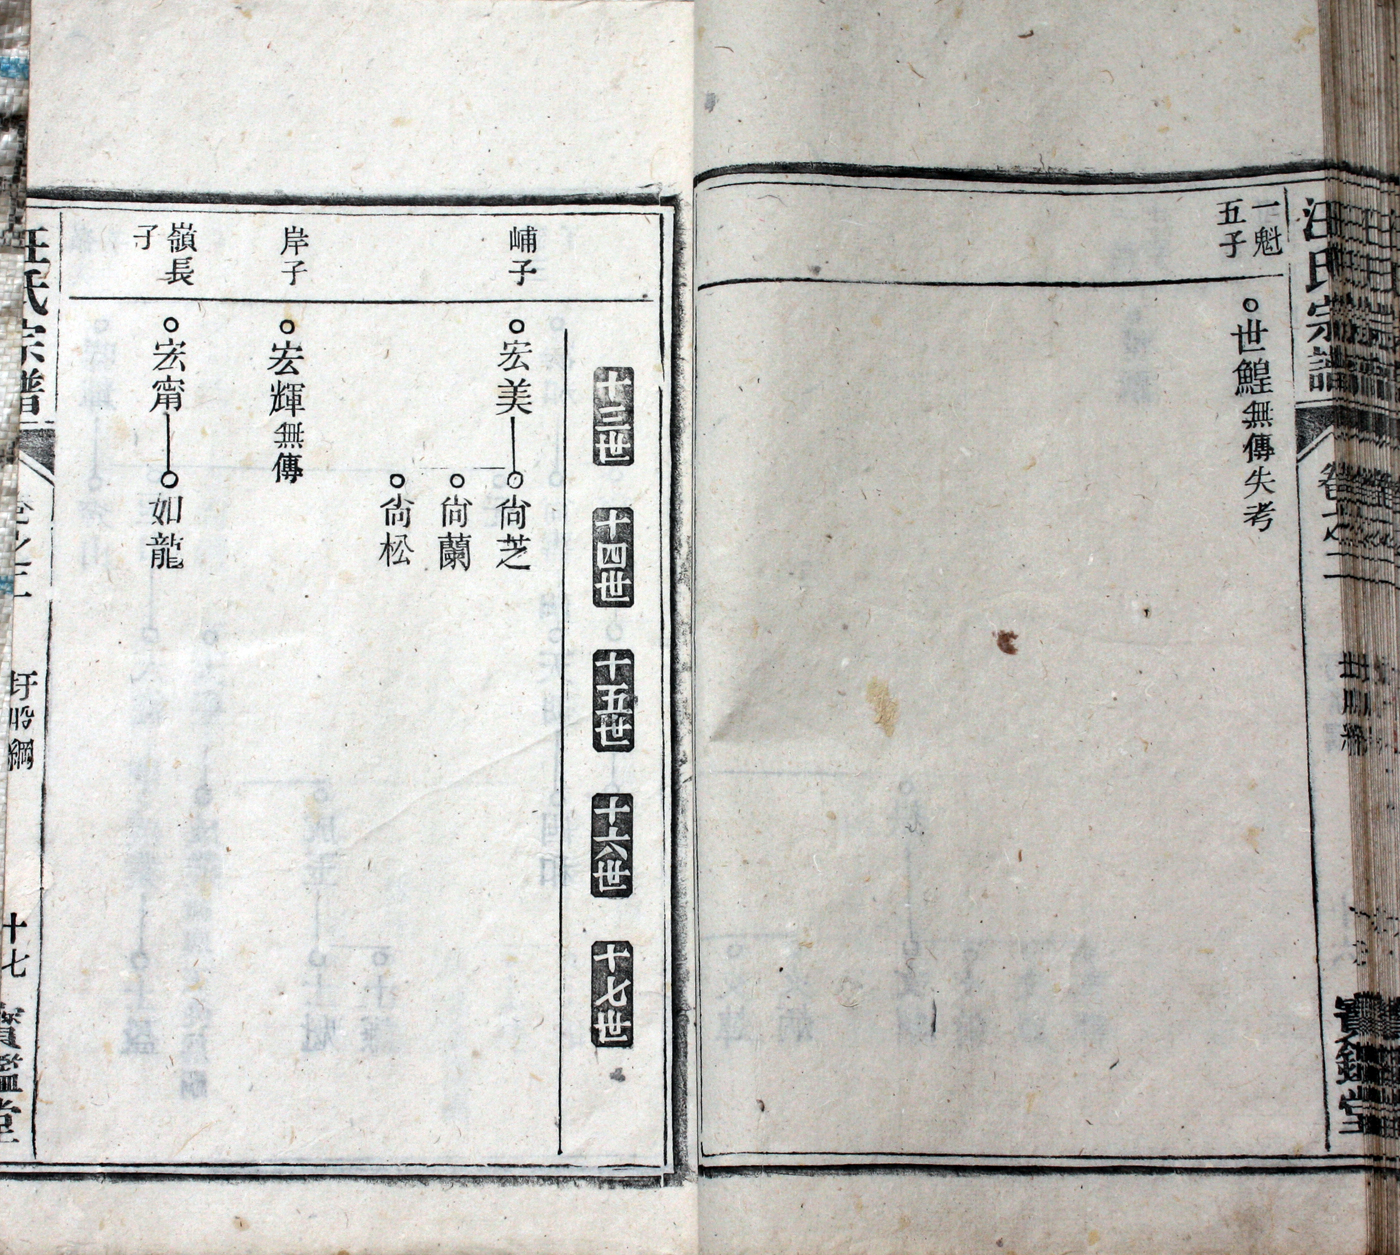 汪氏宗譜
卷之二
寶鑑堂
一魁
五子
世鰉無傳失考
十三世
十四世
十五世
十六世
十七世
峬子
宏美
尙芝
尙蘭
尙松
岸子
宏輝無傳
嶺長
子
宏甯
如龍
汪氏宗譜
卷之二
十七
寶鑑堂